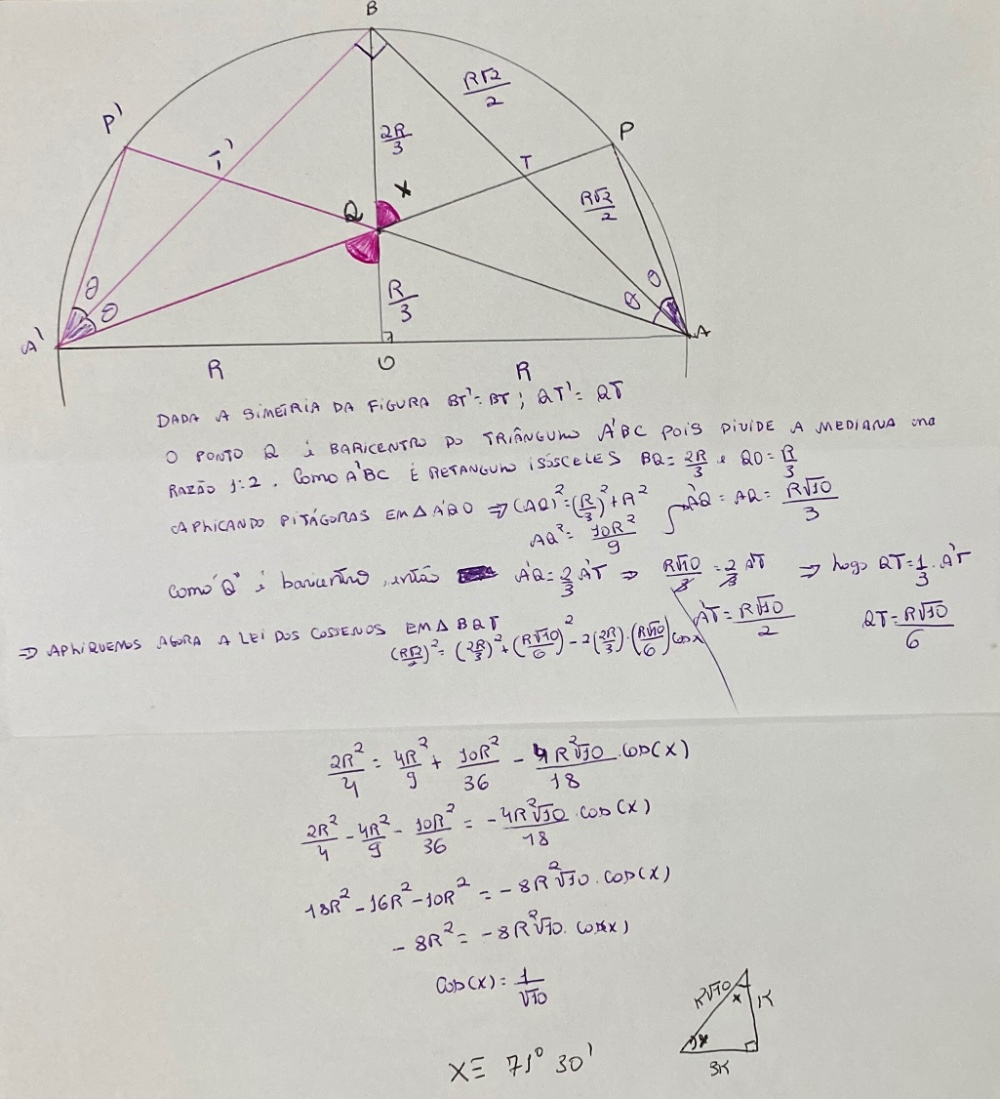 B
R√2/2
P'
P
T'
T
2R/3
X
Q
R√2/2
θ
θ
θ
θ
R/3
A'
A
R
O
R
DADA A SIMETRIA DA FIGURA BT'=BT ; QT'=QT
O PONTO Q é BARICENTRO DO TRIÂNGULO A'BC POIS DIVIDE A MEDIANA na
RAZÃO 1:2. COMO A'BC É RETANGULO ISÓSCELES BQ=2R/3 e QO=R/3
APLICANDO PITÁGORAS EM Δ A'QO ⇒ (AQ)²=(R/3)²+R²
A'Q = AQ = R√10/3
AQ²= 10R²/9
Como "Q" é baricentro, então A'Q=2/3 A'T ⇒ R√10/3 = 2/3 A'T ⇒ logo QT=1/3 . A'T
A'T = R√10/2
QT=R√10/6
⇒ APLIQUEMOS AGORA A LEI DOS COSSENOS EM Δ BQT
(R√2/2)² = (2R/3)²+(R√10/6)² - 2(2R/3).(R√10/6)cosx
2R²/4 = 4R²/9 + 10R²/36 - 4R²√10/18 . cos(x)
2R²/4 - 4R²/9 - 10R²/36 = - 4R²√10/18 . cos(x)
18R² - 16R² - 10R² = - 8R²√10 . cos(x)
- 8R² = - 8R²√10 . cos(x)
cos(x) = 1/√10
K√10
x
K
3K
X ≡ 71° 30'